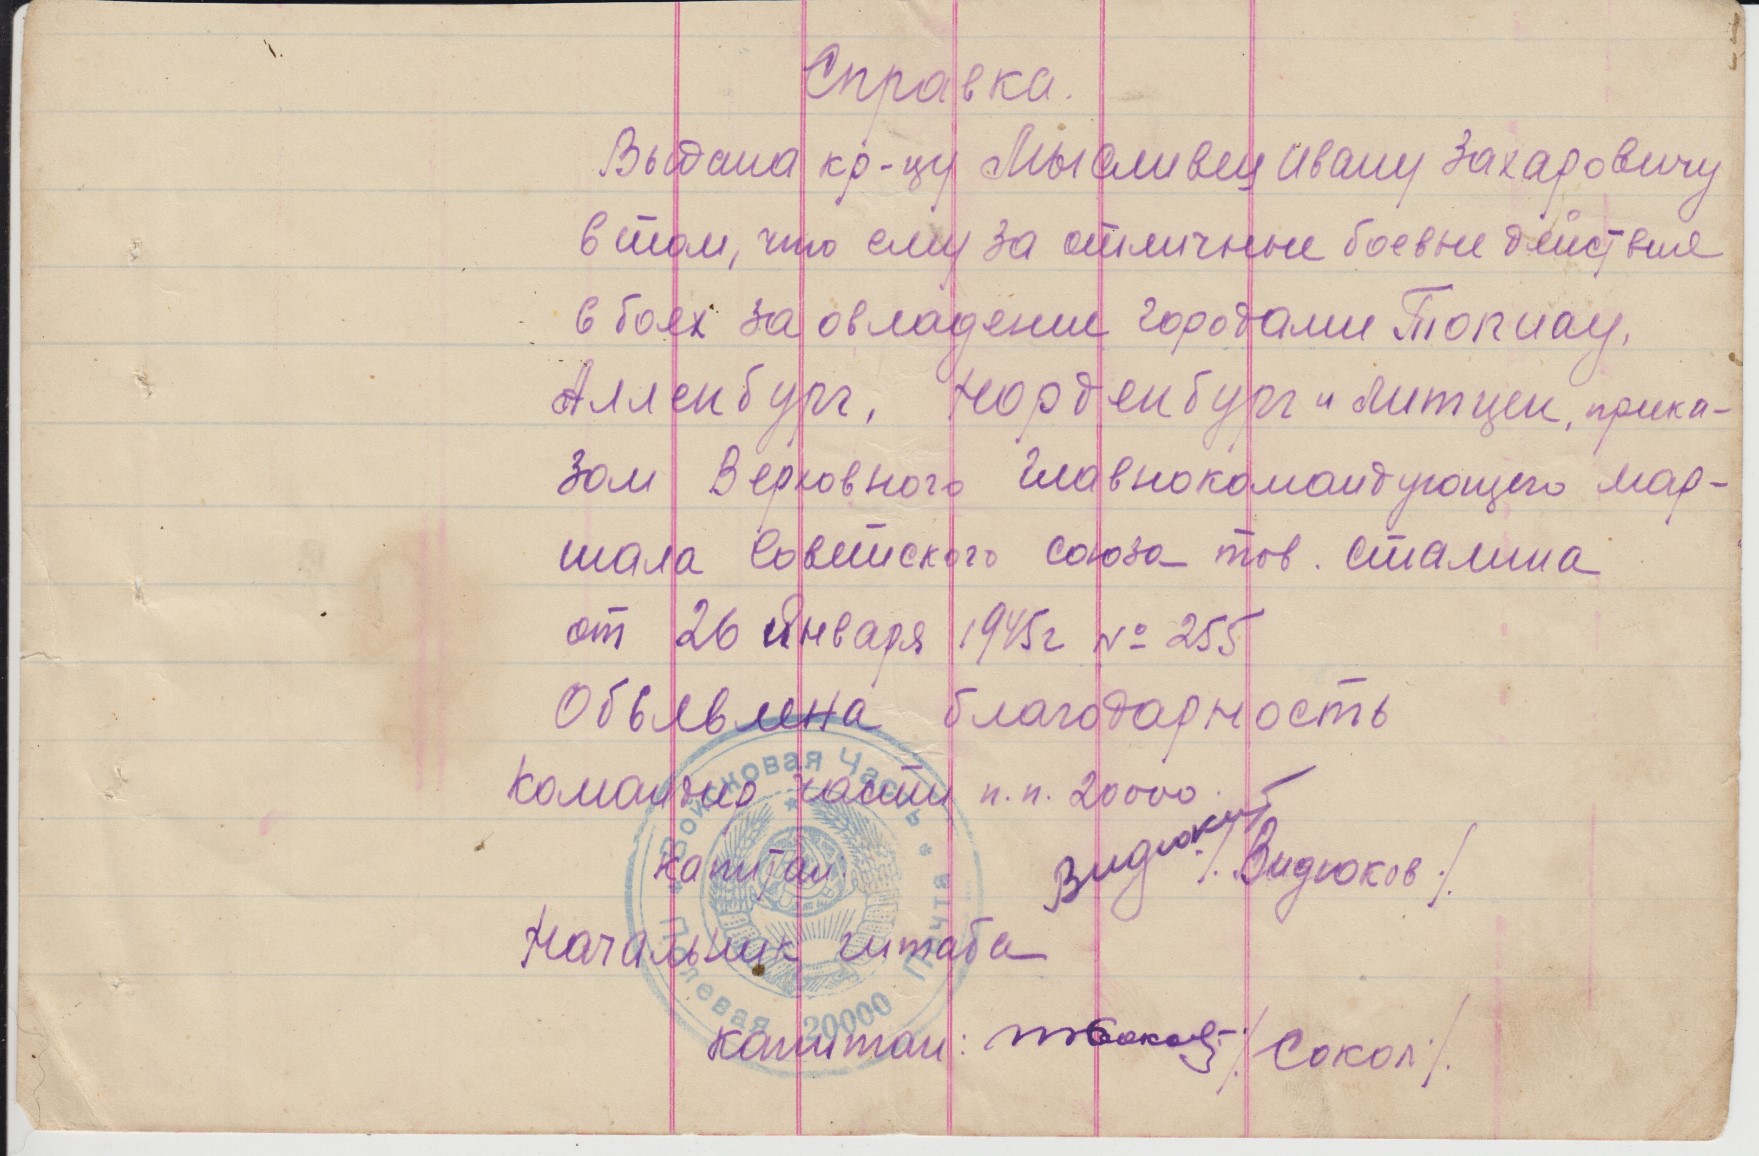 Справка.
Выдана кр-цу Мысливец Ивану Захаровичу
в том, что ему за отличные боевые действия
в боях за овладение городами Топиау,
Алленбург, Норденбург и Литцен, прика-
зом Верховного Главнокомандующего мар-
шала Советского Союза тов. Сталина
от 26 Января 1945г № 255
Объявлена благодарность
Командир части п.п. 20000.
Капитан: Видюков /Видюков/.
Начальник штаба
Капитан: Сокол /Сокол/.
Войсковая Часть * Полевая Почта 20000